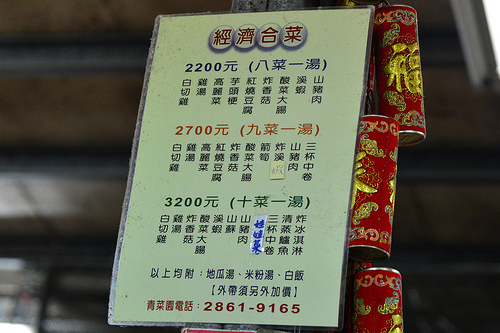 經濟合菜
2200元 (八菜一湯)
白切雞
雞湯
高麗菜
芋頭梗
紅燒豆腐
炸香菇
酸菜大腸
溪蝦
山豬肉
2700元 (九菜一湯)
白切雞
雞湯
高麗菜
紅燒豆腐
炸香菇
酸菜大腸
箭筍
炸溪蝦
山豬肉
三杯中卷
3200元 (十菜一湯)
白切雞
雞湯
炸香菇
酸菜大腸
溪蝦
山蘇
山豬肉
娃娃菜
三杯中卷
清蒸鱸魚
炸冰淇淋
以上均附：地瓜湯、米粉湯、白飯
【外帶須另外加價】
青菜園電話：2861-9165
福